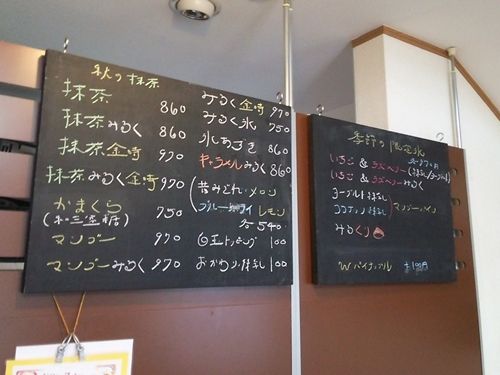 秋の抹茶
抹茶 860
抹茶みるく 860
抹茶金時 970
抹茶みるく金時 970
かまくら
(和三盆糖) 750
マンゴー 970
マンゴーみるく 970
みるく金時 970
みるく氷 750
氷あずき 860
キャラメルみるく 860
昔みどれ・メロン
ブルーハワイ レモン
各540
白玉トッピング 100
おかわり 100
季節の限定氷
いちご&ラズベリー
いちご&ラズベリーみるく
ヨーグルト
ココナッツ マンゴーパイン
みるくり
Wパイナップル